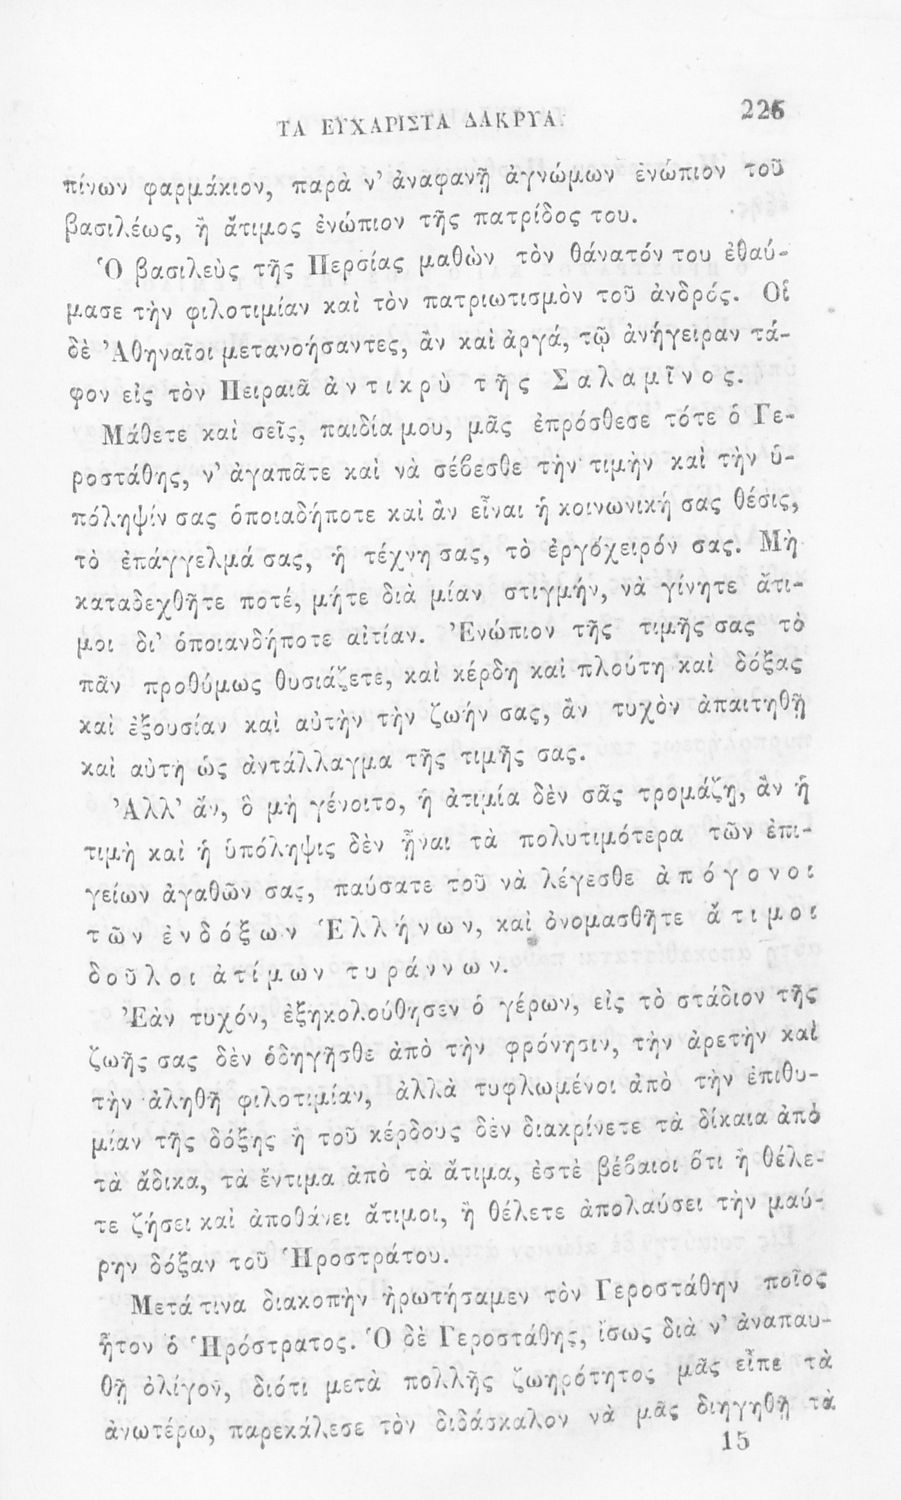 ΤΑ ΕΥΧΑΡΙΣΤΑ ΔΑΚΡΥΑ. 225
πίνων φαρμάκιον, παρὰ ν’ ἀναφανῇ ἀγνώμων ἐνώπιον τοῦ
βασιλέως, ἢ ἄτιμος ἐνώπιον τῆς πατρίδος του.
Ὁ βασιλεὺς τῆς Περσίας μαθὼν τὸν θάνατόν του ἐθαύ-
μασε τὴν φιλοτιμίαν καὶ τὸν πατριωτισμὸν τοῦ ἀνδρός. Οἱ
δὲ Ἀθηναῖοι μετανοήσαντες, ἂν καὶ ἀργά, τῷ ἀνήγειραν τά-
φον εἰς τὸν Πειραιᾶ ἀντικρὺ τῆς Σαλαμῖνος.
Μάθετε καὶ σεῖς, παιδία μου, μᾶς ἐπρόσθεσε τότε ὁ Γε-
ροστάθης, ν’ ἀγαπᾶτε καὶ νὰ σέβεσθε τὴν τιμὴν καὶ τὴν ὑ-
πόληψίν σας ὁποιαδήποτε καὶ ἂν εἶναι ἡ κοινωνική σας θέσις,
τὸ ἐπάγγελμά σας, ἡ τέχνη σας, τὸ ἐργόχειρόν σας. Μὴ
καταδεχθῆτε ποτέ, μήτε διὰ μίαν στιγμήν, νὰ γίνητε ἄτι-
μοι δι’ ὁποιανδήποτε αἰτίαν. Ἐνώπιον τῆς τιμῆς σας τὸ
πᾶν προθύμως θυσιάζετε, καὶ κέρδη καὶ πλούτη καὶ δόξας
καὶ ἐξουσίαν καὶ αὐτὴν τὴν ζωήν σας, ἂν τυχὸν ἀπαιτηθῇ
καὶ αὐτὴ ὡς ἀντάλλαγμα τῆς τιμῆς σας.
Ἀλλ’ ἄν, ὃ μὴ γένοιτο, ἡ ἀτιμία δὲν σᾶς τρομάζῃ, ἂν ἡ
τιμὴ καὶ ἡ ὑπόληψις δὲν ᾖναι τὰ πολυτιμότερα τῶν ἐπι-
γείων ἀγαθῶν σας, παύσατε τοῦ νὰ λέγεσθε ἀπόγονοι
τῶν ἐνδόξων Ἑλλήνων, καὶ ὀνομασθῆτε ἄτιμοι
δοῦλοι ἀτίμων τυράννων.
Ἐὰν τυχόν, ἐξηκολούθησεν ὁ γέρων, εἰς τὸ στάδιον τῆς
ζωῆς σας δὲν ὁδηγῆσθε ἀπὸ τὴν φρόνησιν, τὴν ἀρετὴν καὶ
τὴν ἀληθῆ φιλοτιμίαν, ἀλλὰ τυφλωμένοι ἀπὸ τὴν ἐπιθυ-
μίαν τῆς δόξης ἢ τοῦ κέρδους δὲν διακρίνετε τὰ δίκαια ἀπὸ
τὰ ἄδικα, τὰ ἔντιμα ἀπὸ τὰ ἄτιμα, ἐστὲ βέβαιοι ὅτι ἢ θέλε-
τε ζήσει καὶ ἀποθάνει ἄτιμοι, ἢ θέλετε ἀπολαύσει τὴν μαύ-
ρην δόξαν τοῦ Ἡροστράτου.
Μετά τινα διακοπὴν ἠρωτήσαμεν τὸν Γεροστάθην ποῖος
ἦτον ὁ Ἡρόστρατος. Ὁ δὲ Γεροστάθης, ἴσως διὰ ν’ ἀναπαυ-
θῇ ὀλίγον, διότι μετὰ πολλῆς ζωηρότητος μᾶς εἶπε τὰ
ἀνωτέρω, παρεκάλεσε τὸν διδάσκαλον νὰ μᾶς διηγηθῇ τὰ
15